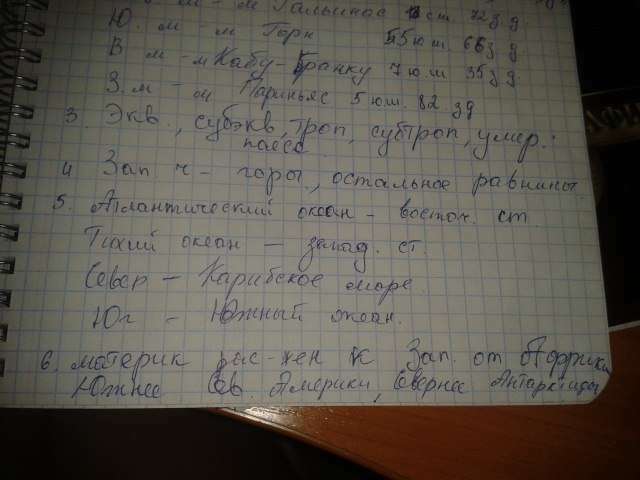 м - м Гальинас 13 сш. 72 з д.
Ю. м - м Горн 55 ю ш. 66 з д.
В м - м Кабу-Бранку 7 ю ш 35 з д
З. м - м Париньяс 5 юш. 82 зд
3. Экв., субэкв, троп, субтроп, умер.:
пояса
4 Зап ч - горы, остальное равнины.
5. Атлантический океан - восточ. ст.
Тихий океан - запад. ст.
Север - Карибское море.
Юг - Южный океан.
6. материк рас-жен к Зап. от Африки
Южнее Св. Америки, Севернее Антарктиды